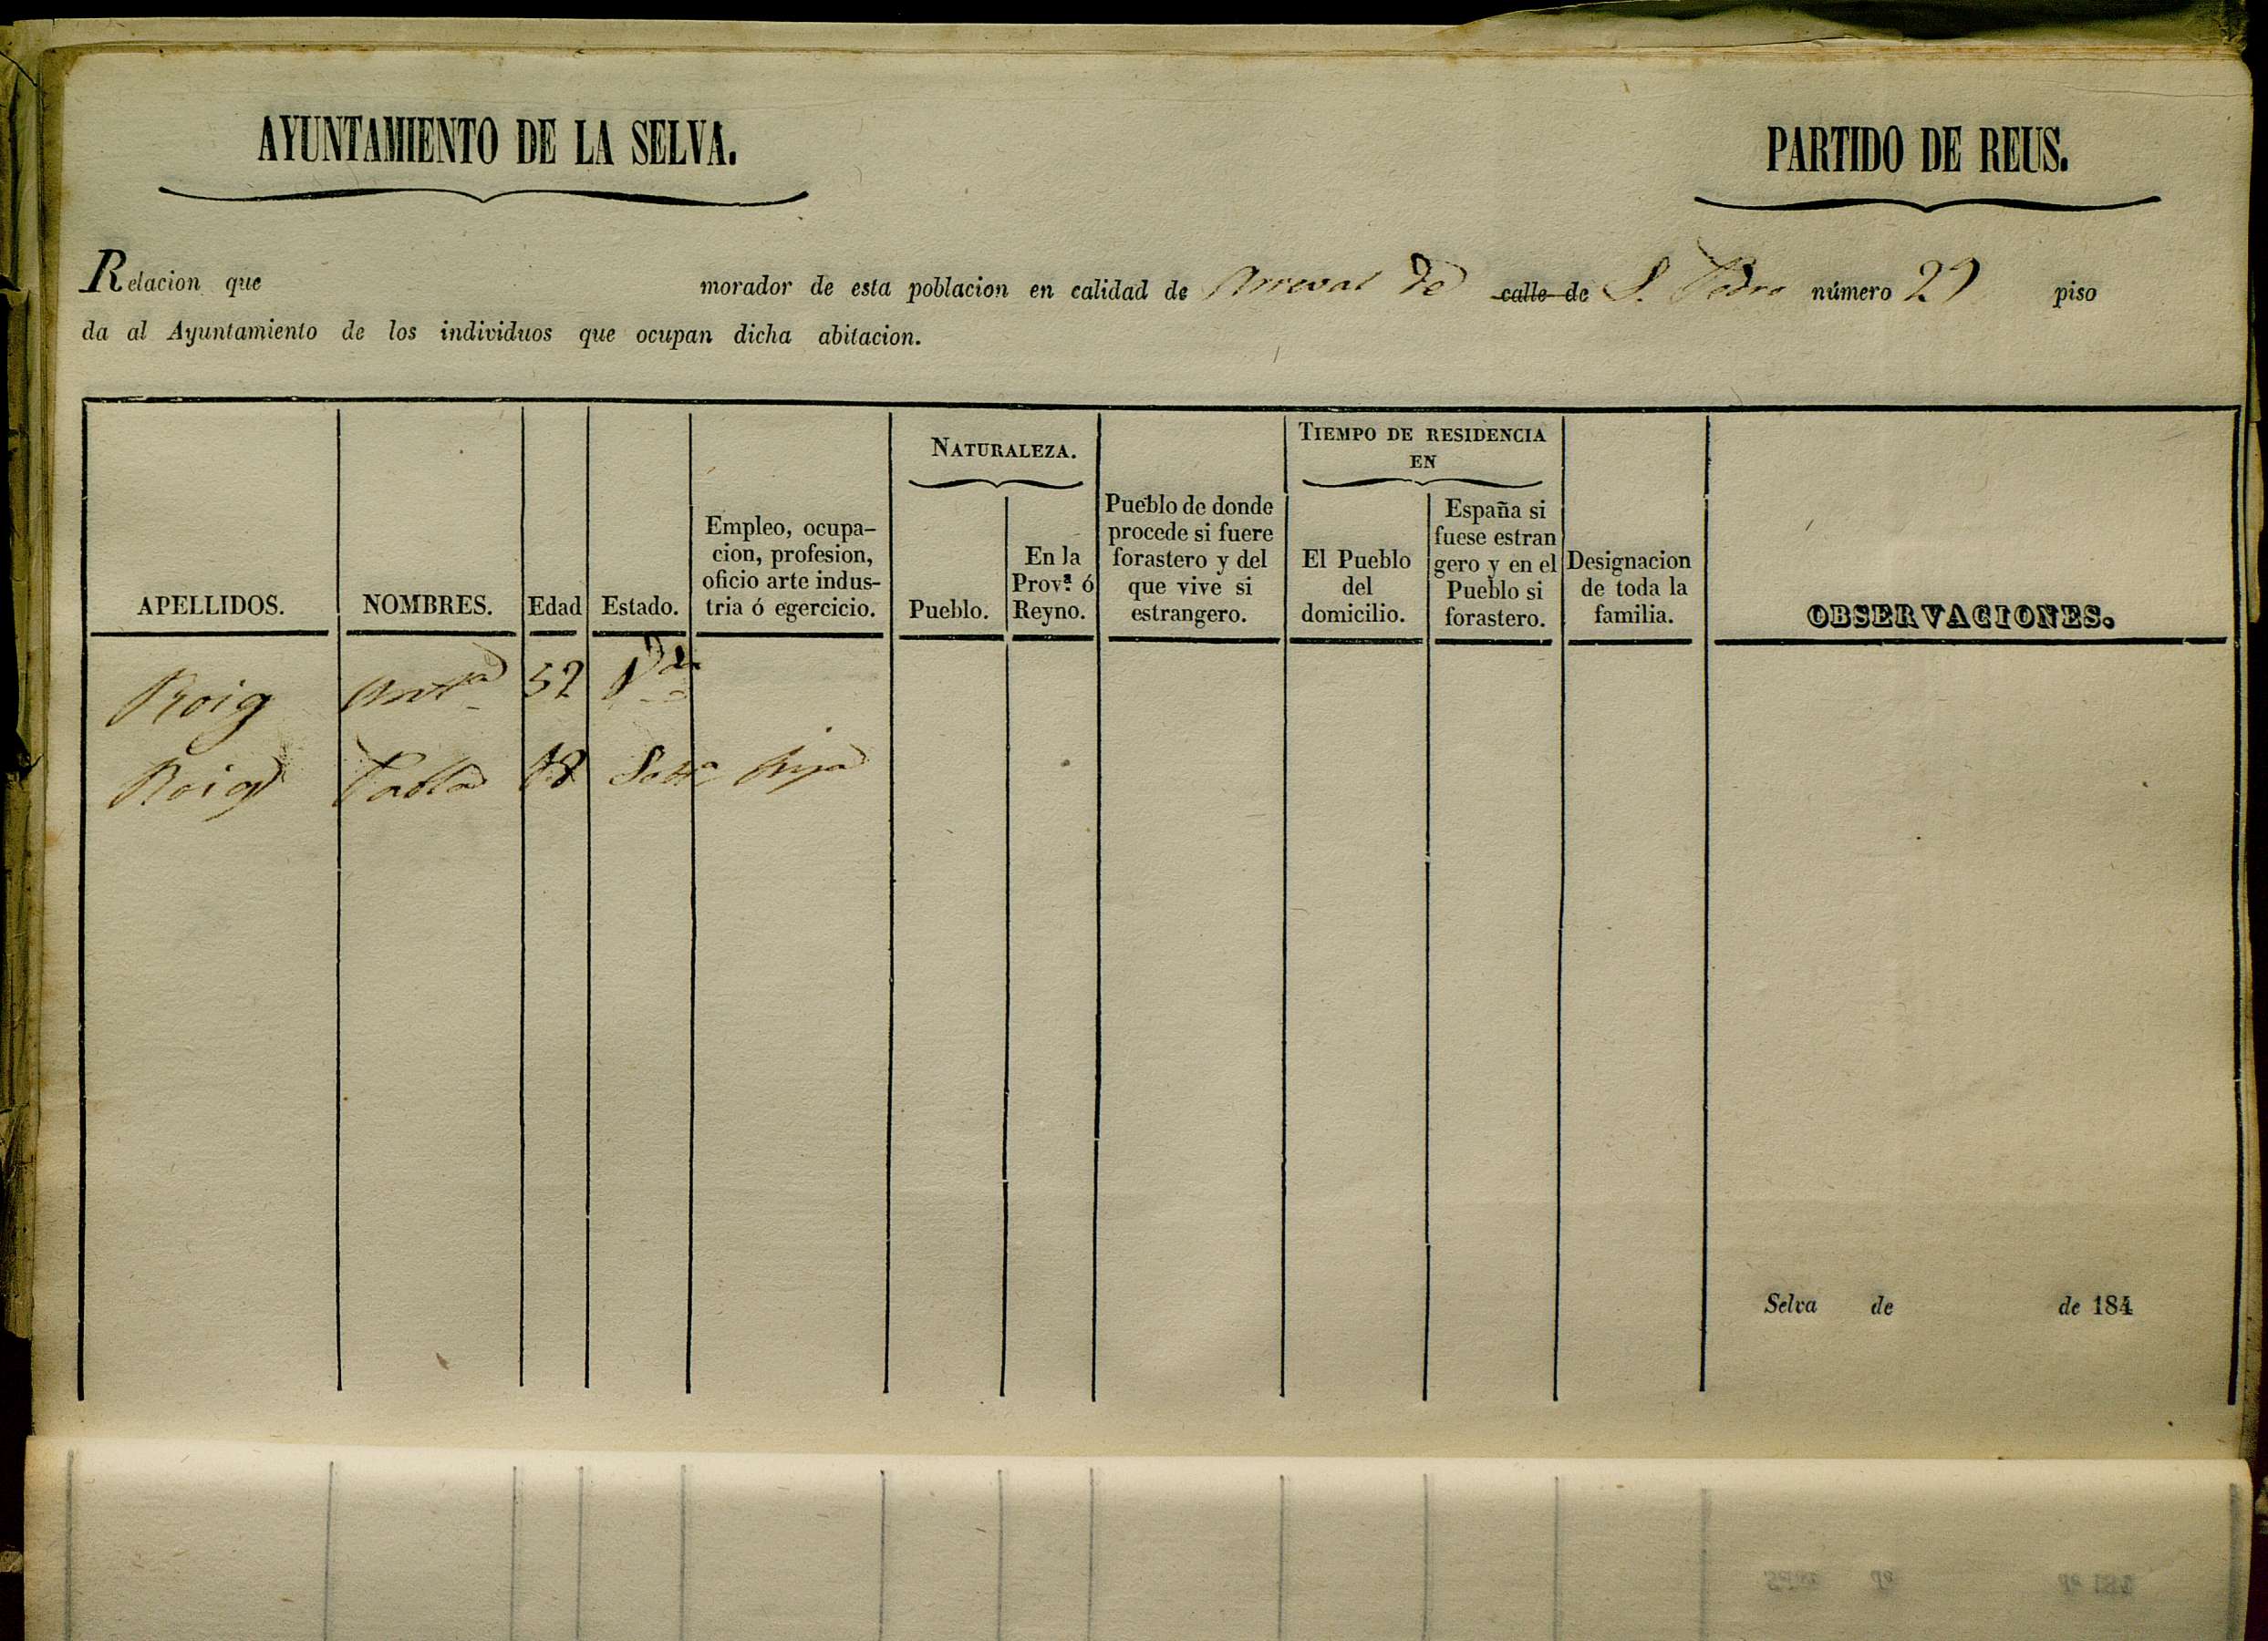 AYUNTAMIENTO DE LA SELVA.
PARTIDO DE REUS.
Relacion que morador de esta poblacion en calidad de Arreval de calle de S. Pedro número 29 piso
da al Ayuntamiento de los individuos que ocupan dicha abitacion.
NATURALEZA.
TIEMPO DE RESIDENCIA
EN
APELLIDOS.
NOMBRES.
Edad
Estado.
Empleo, ocupa-
cion, profesion,
oficio arte indus-
tria ó egercicio.
Pueblo.
En la
Prov.ª ó
Reyno.
Pueblo de donde
procede si fuere
forastero y del
que vive si
estrangero.
El Pueblo
del
domicilio.
España si
fuese estran
gero y en el
Pueblo si
forastero.
Designacion
de toda la
familia.
OBSERVACIONES.
Roig Antª 52 Vda
Roig Pabla 18 Solta hija
Selva de de 184